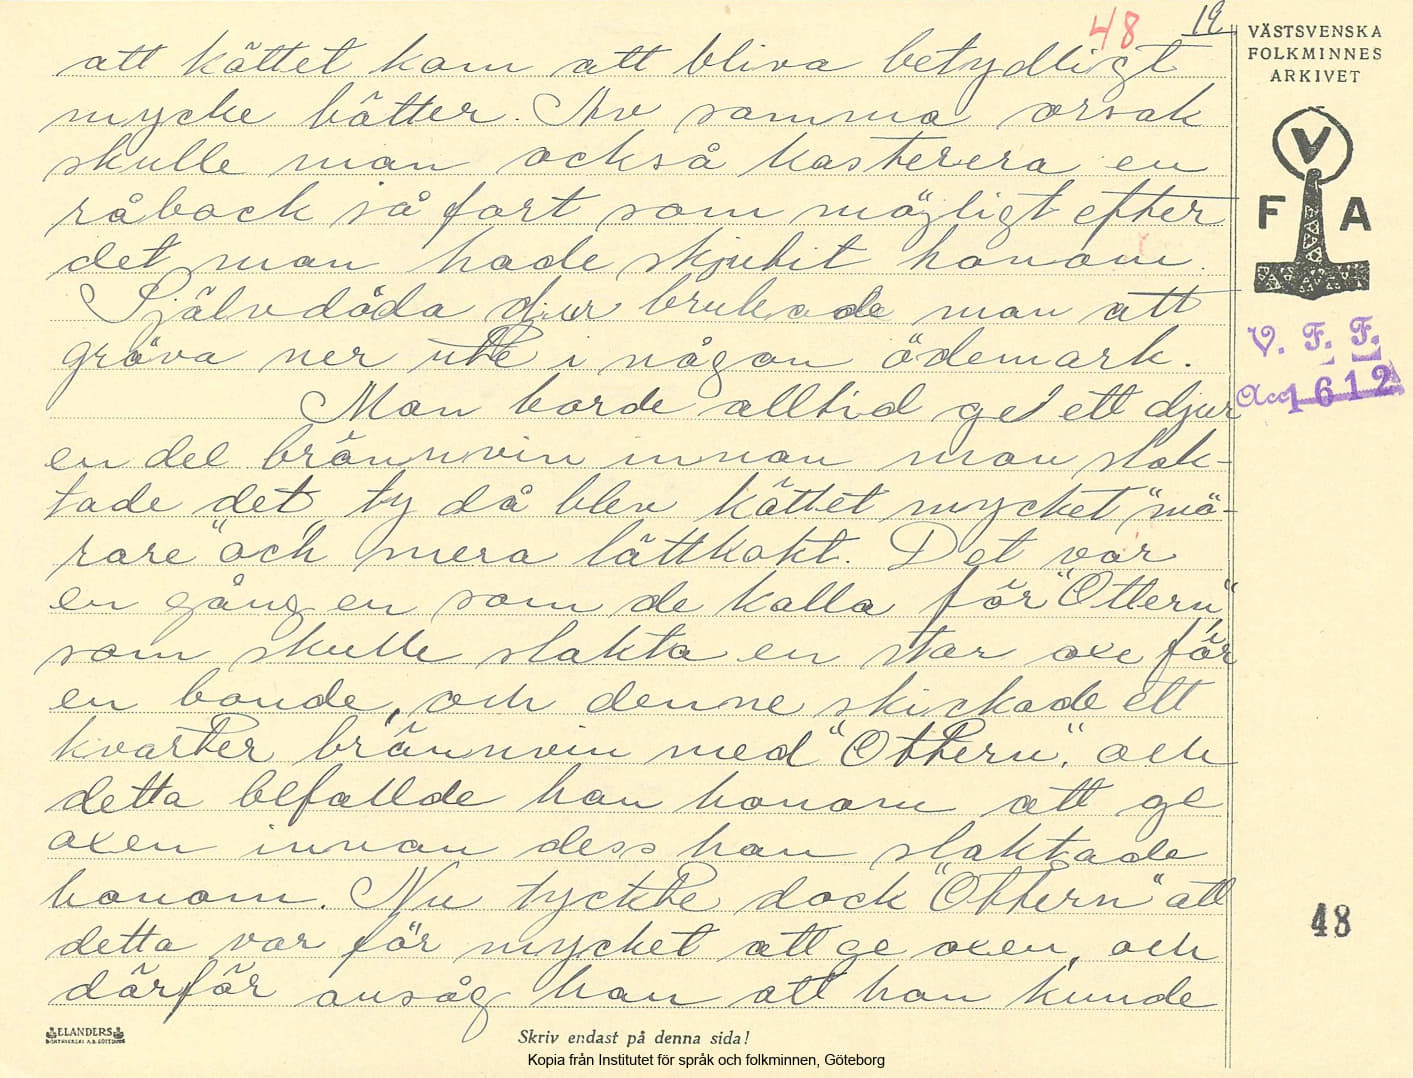 48 19
VÄSTSVENSKA
FOLKMINNES
ARKIVET
V
F A
V. F. F.
Acc 1612
att köttet kom att bliva betydligt
mycke bätter. Av samma orsak
skulle man också kasterera en
råbock så fort som möjligt efter
det man hade skjutit honom.
Självdöda djur brukade man att
gräva ner ute i någon ödemark.
Man borde alltid ge ett djur
en del brännvin innan man slak-
tade det ty då blev köttet mycket "mö-
rare" och mera lättkokt. Det var
en gång en som de kalla för "Ottern",
som skulle slakta en stor oxe för
en bonde, och denne skickade ett
kvarter brännvin med "Ottern", och
detta befallde han honom att ge
oxen innan dess han slaktade
honom. Nu tyckte dock "Ottern" att
detta var för mycket att ge oxen, och
därför ansåg han att han kunde
48
ELANDERS
Skriv endast på denna sida!
Kopia från Institutet för språk och folkminnen, Göteborg